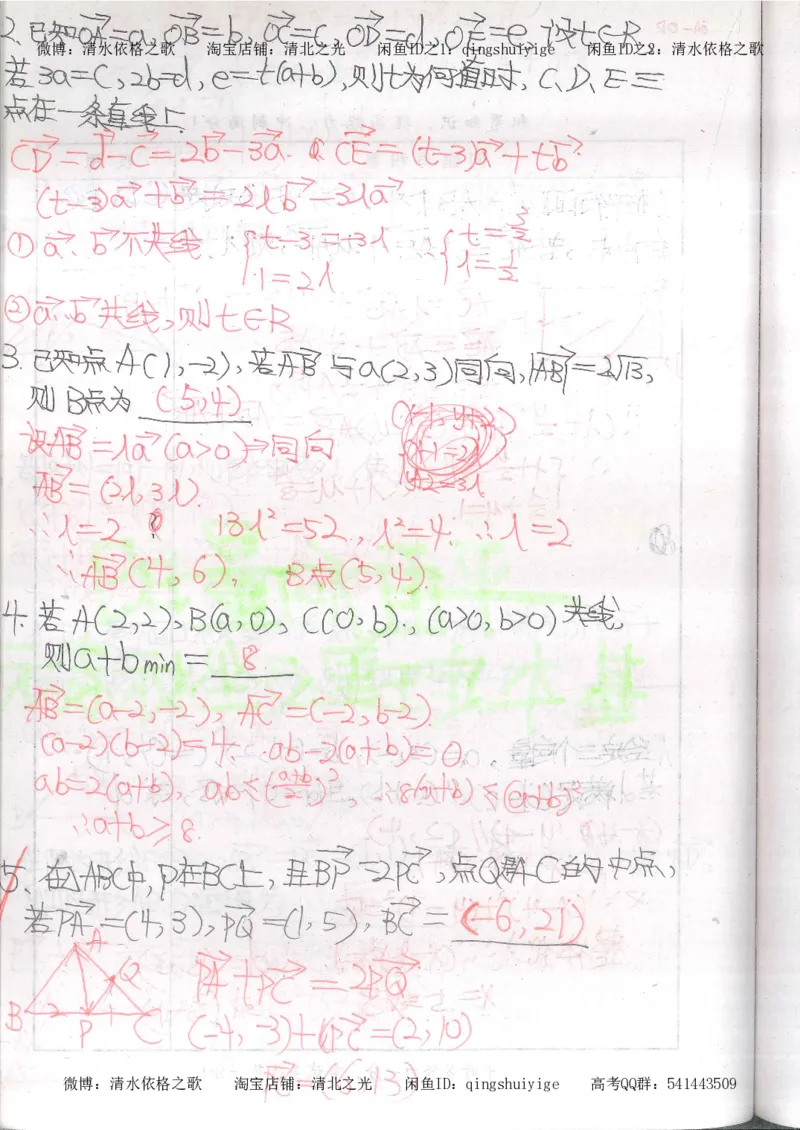 2.已知OA=a,OB=b,OC=c,OD=d,OE=e,设t∈R
微博：清水依格之歌 淘宝店铺：清北之光 闲鱼ID之1：qingshuiyige 闲鱼ID之2：清水依格之歌
若3a=C,2b=d,e=t(a+b),则t为何值时,C、D、E三
点在一条直线上.
CD=d-c=2b-3a. CE=(t-3)a+tb.
(t-3)a+tb=2λb-3λa
①a、b不共线. t-3=-3λ ∴ t=
t=2λ λ=
②a、b共线,则t∈R
3.已知点A(1,-2),若AB与a(2,3)同向,|AB|=2√13,
则B点为 (5,4)
设AB=λa(a>0)→同向
AB=(2λ,3λ).
∴λ=2 13λ²=52.,λ²=4.∴λ=2
∴AB(4,6), B点(5,4).
4.若A(2,2),B(a,0),C(0,b).,(a>0,b>0)共线,
则a+b min= 8
AB=(a-2,-2),AC=(-2,b-2).
(a-2)(b-2)=4. ab-2(a+b)=0.
ab=2(a+b), ab≤(a+b/2)², ∴8(a+b)≤(a+b)²
∴a+b≥8.
5.在△ABC中,P在BC上,且BP=2PC,点Q是AC的中点,
若PA=(4,3),PQ=(1,5),BC= (-6,21)
A
Q
B 2 P 1 C
PA+PC=2PQ
(-4,-3)+PC=(2,10)
微博：清水依格之歌 淘宝店铺：清北之光 闲鱼ID：qingshuiyige 高考QQ群：541443509